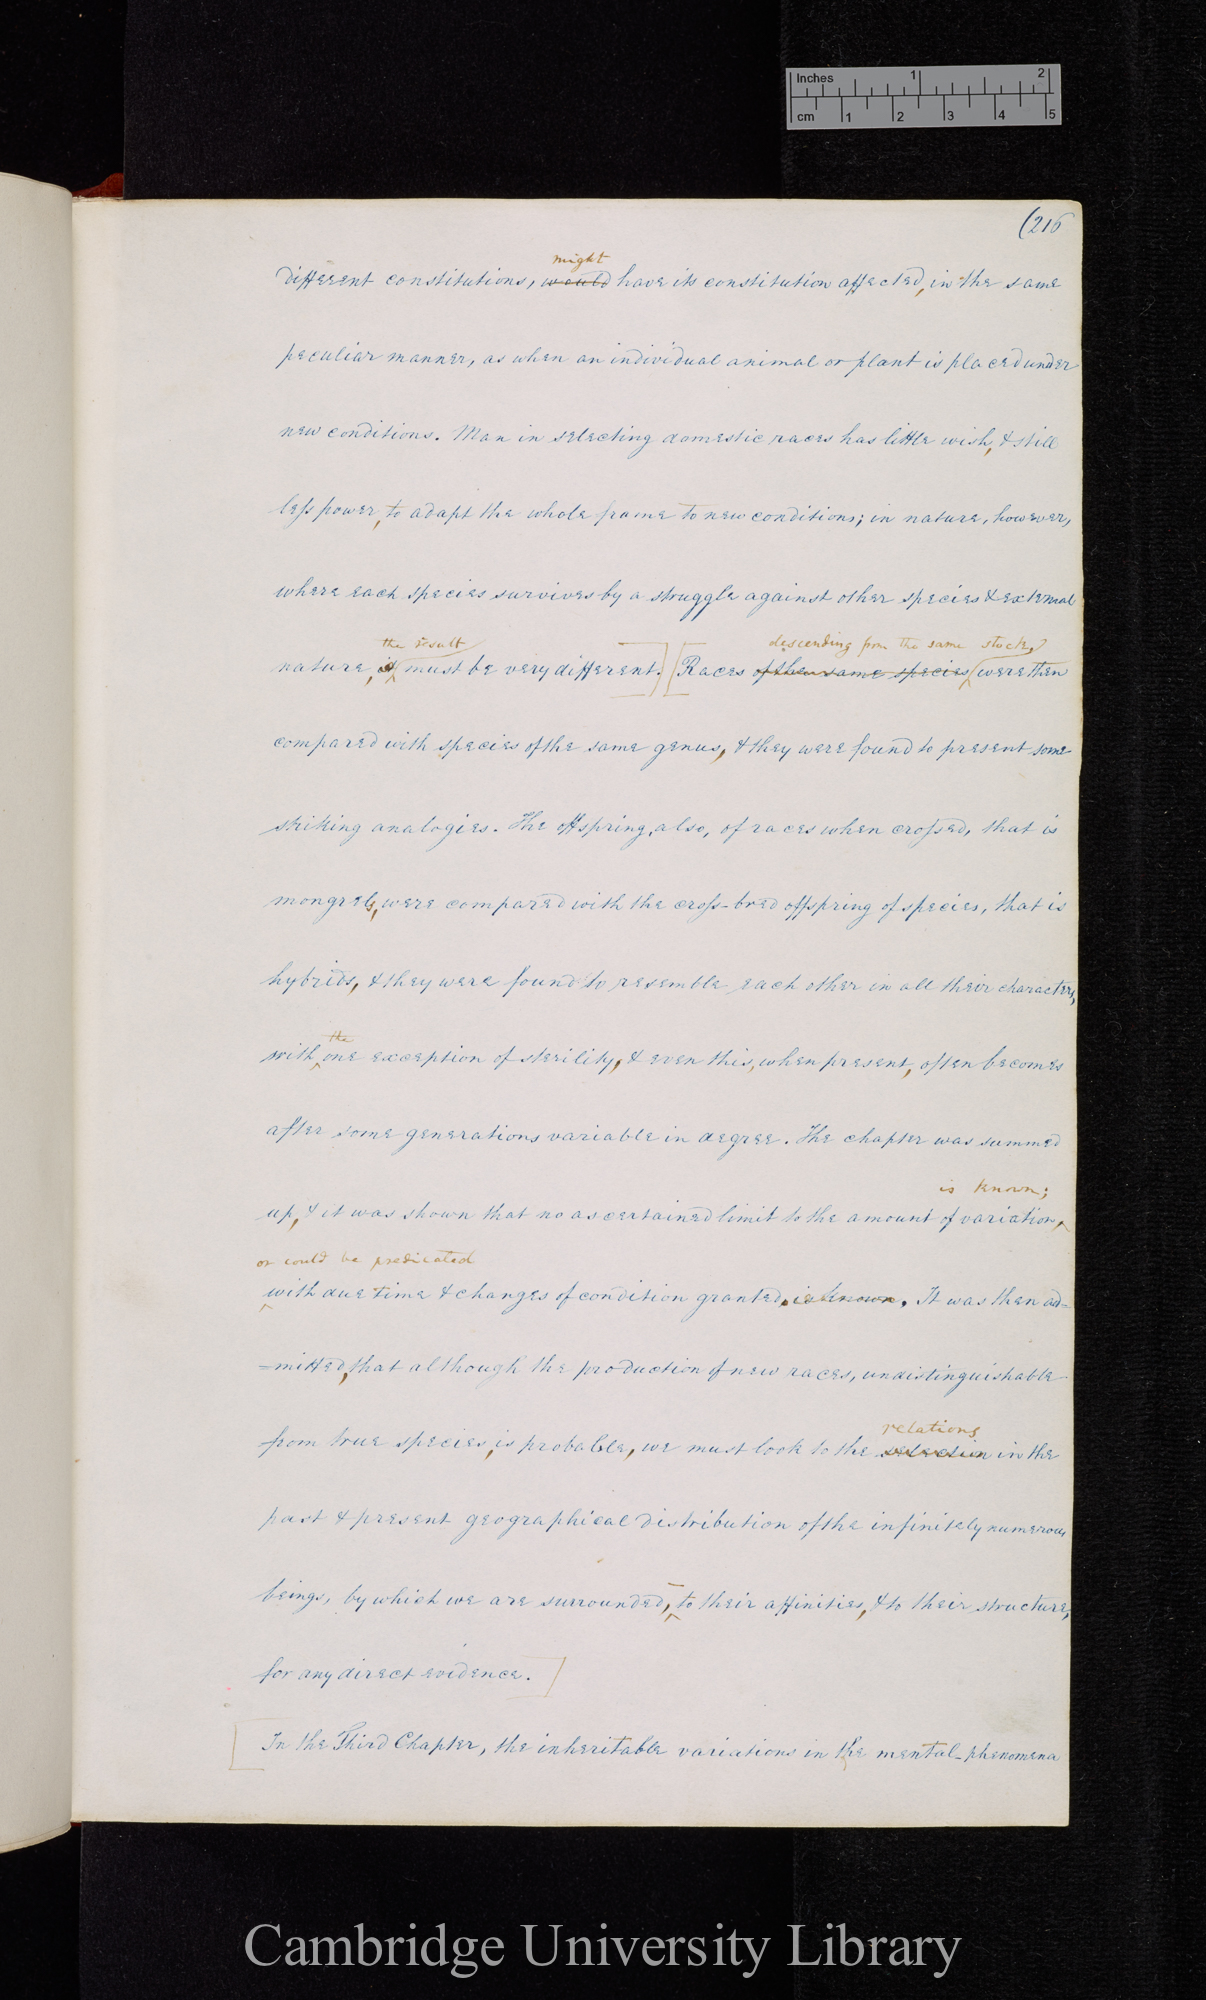 Inches 1 2
cm 1 2 3 4 5
(216
might
different constitutions, would have its constitution affected, in the same
peculiar manner, as when an individual animal or plant is placed under
new conditions. Man in selecting domestic races has little wish, & still
less power, to adapt the whole frame to new conditions; in nature, however,
where each species survives by a struggle against other species & external
the result descending from the same stock,
nature, it must be very different.] [Races of the same species were then
compared with species of the same genus, & they were found to present some
striking analogies. The offspring, also, of races when crossed, that is
mongrels, were compared with the cross-bred offspring of species, that is
hybrids, & they were found to resemble each other in all their characters,
the
with one exception of sterility, & even this, when present, often becomes
after some generations variable in degree. The chapter was summed
is known;
up, & it was shown that no ascertained limit to the amount of variation,
or could be predicated
with due time & changes of condition granted, is known. It was then ad=
=mitted, that although the production of new races, undistinguishable
relations
from true species, is probable, we must look to the selection in the
past & present geographical distribution of the infinitely numerous
beings, by which we are surrounded, to their affinities, & to their structure,
for any direct evidence.]
[In the Third Chapter, the inheritable variations in the mental phenomena
Cambridge University Library